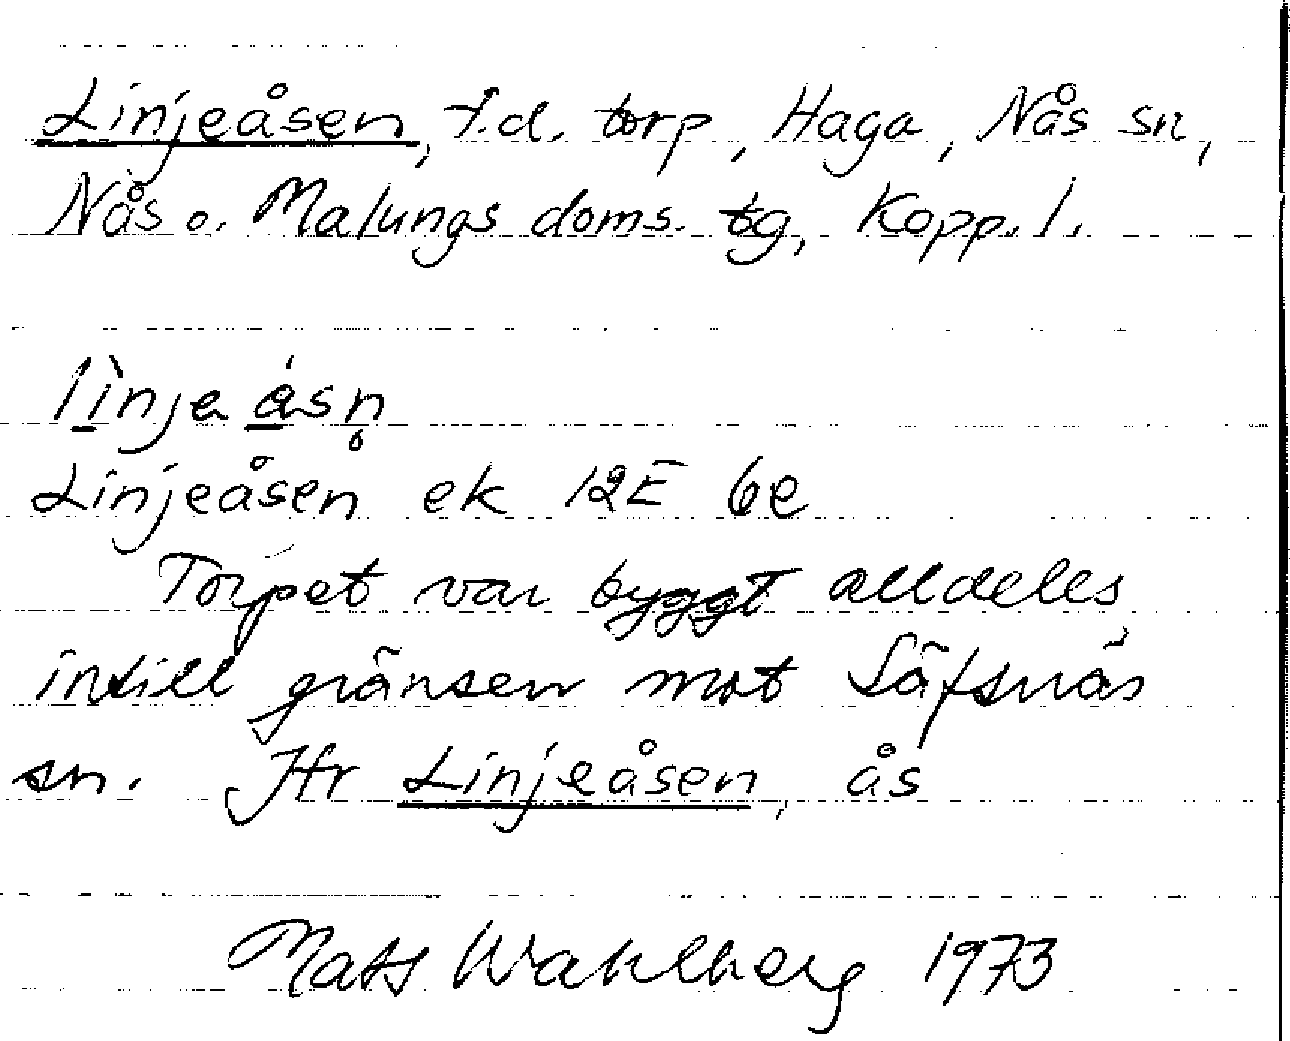 Linjeåsen, f.d. torp, Haga, Nås sn,
Nås o. Malungs doms. tg, Kopp. l.
lìnje ásn̥
Linjeåsen ek 12E 6e
Torpet var byggt alldeles
intill gränsen mot Säfsnäs
sn. Jfr Linjeåsen, ås
Mats Wahlberg 1973